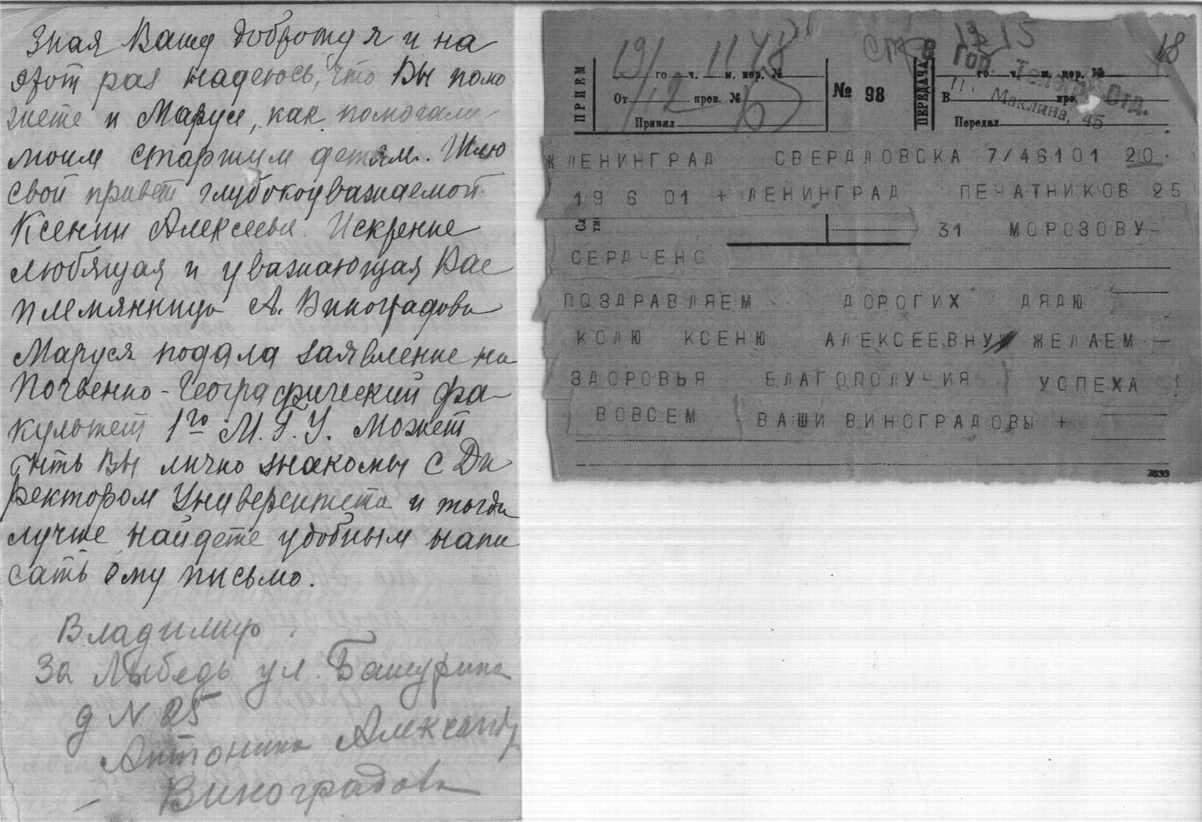 Зная Вашу доброту я и на
этот раз надеюсь, что Вы помо
жете и Марусе, как помогали
моим старшим детям. Шлю
свой привет глубокоуважаемой
Ксении Алексеевне. Искренне
любящая и уважающая Вас
племянница А. Виноградова
Маруся подала заявление на
Почвенно-Географический фа-
культет 1го М.Г.У. Может
быть Вы лично знакомы с Ди
ректором Университета и тогда
лучше найдете удобным напи
сать ему письмо.
Владимир.
За Лыбедь ул. Батурина
д N 25
Антонина Александр
Виноградова
ПРИЕМ
19/ го ч. 11 48 м. пер. №
От /12 пров. №
Принял
№ 98
ПЕРЕДАЧА
го ч. м. пер. №
В про.
Передал
18
Гор. Телегр. Отд.
П. Маклина, 45
ЛЕНИНГРАД СВЕРДЛОВСКА 7/46101 20
19 6 01 + ЛЕНИНГРАД ПЕЧАТНИКОВ 25
31 МОРОЗОВУ-
СЕРДАЧЕНО
ПОЗДРАВЛЯЕМ ДОРОГИХ ДЯДЮ
КОЛЮ КСЕНЮ АЛЕКСЕЕВНУ ЖЕЛАЕМ
ЗДОРОВЬЯ БЛАГОПОЛУЧИЯ УСПЕХА
ВОВСЕМ ВАШИ ВИНОГРАДОВЫ +